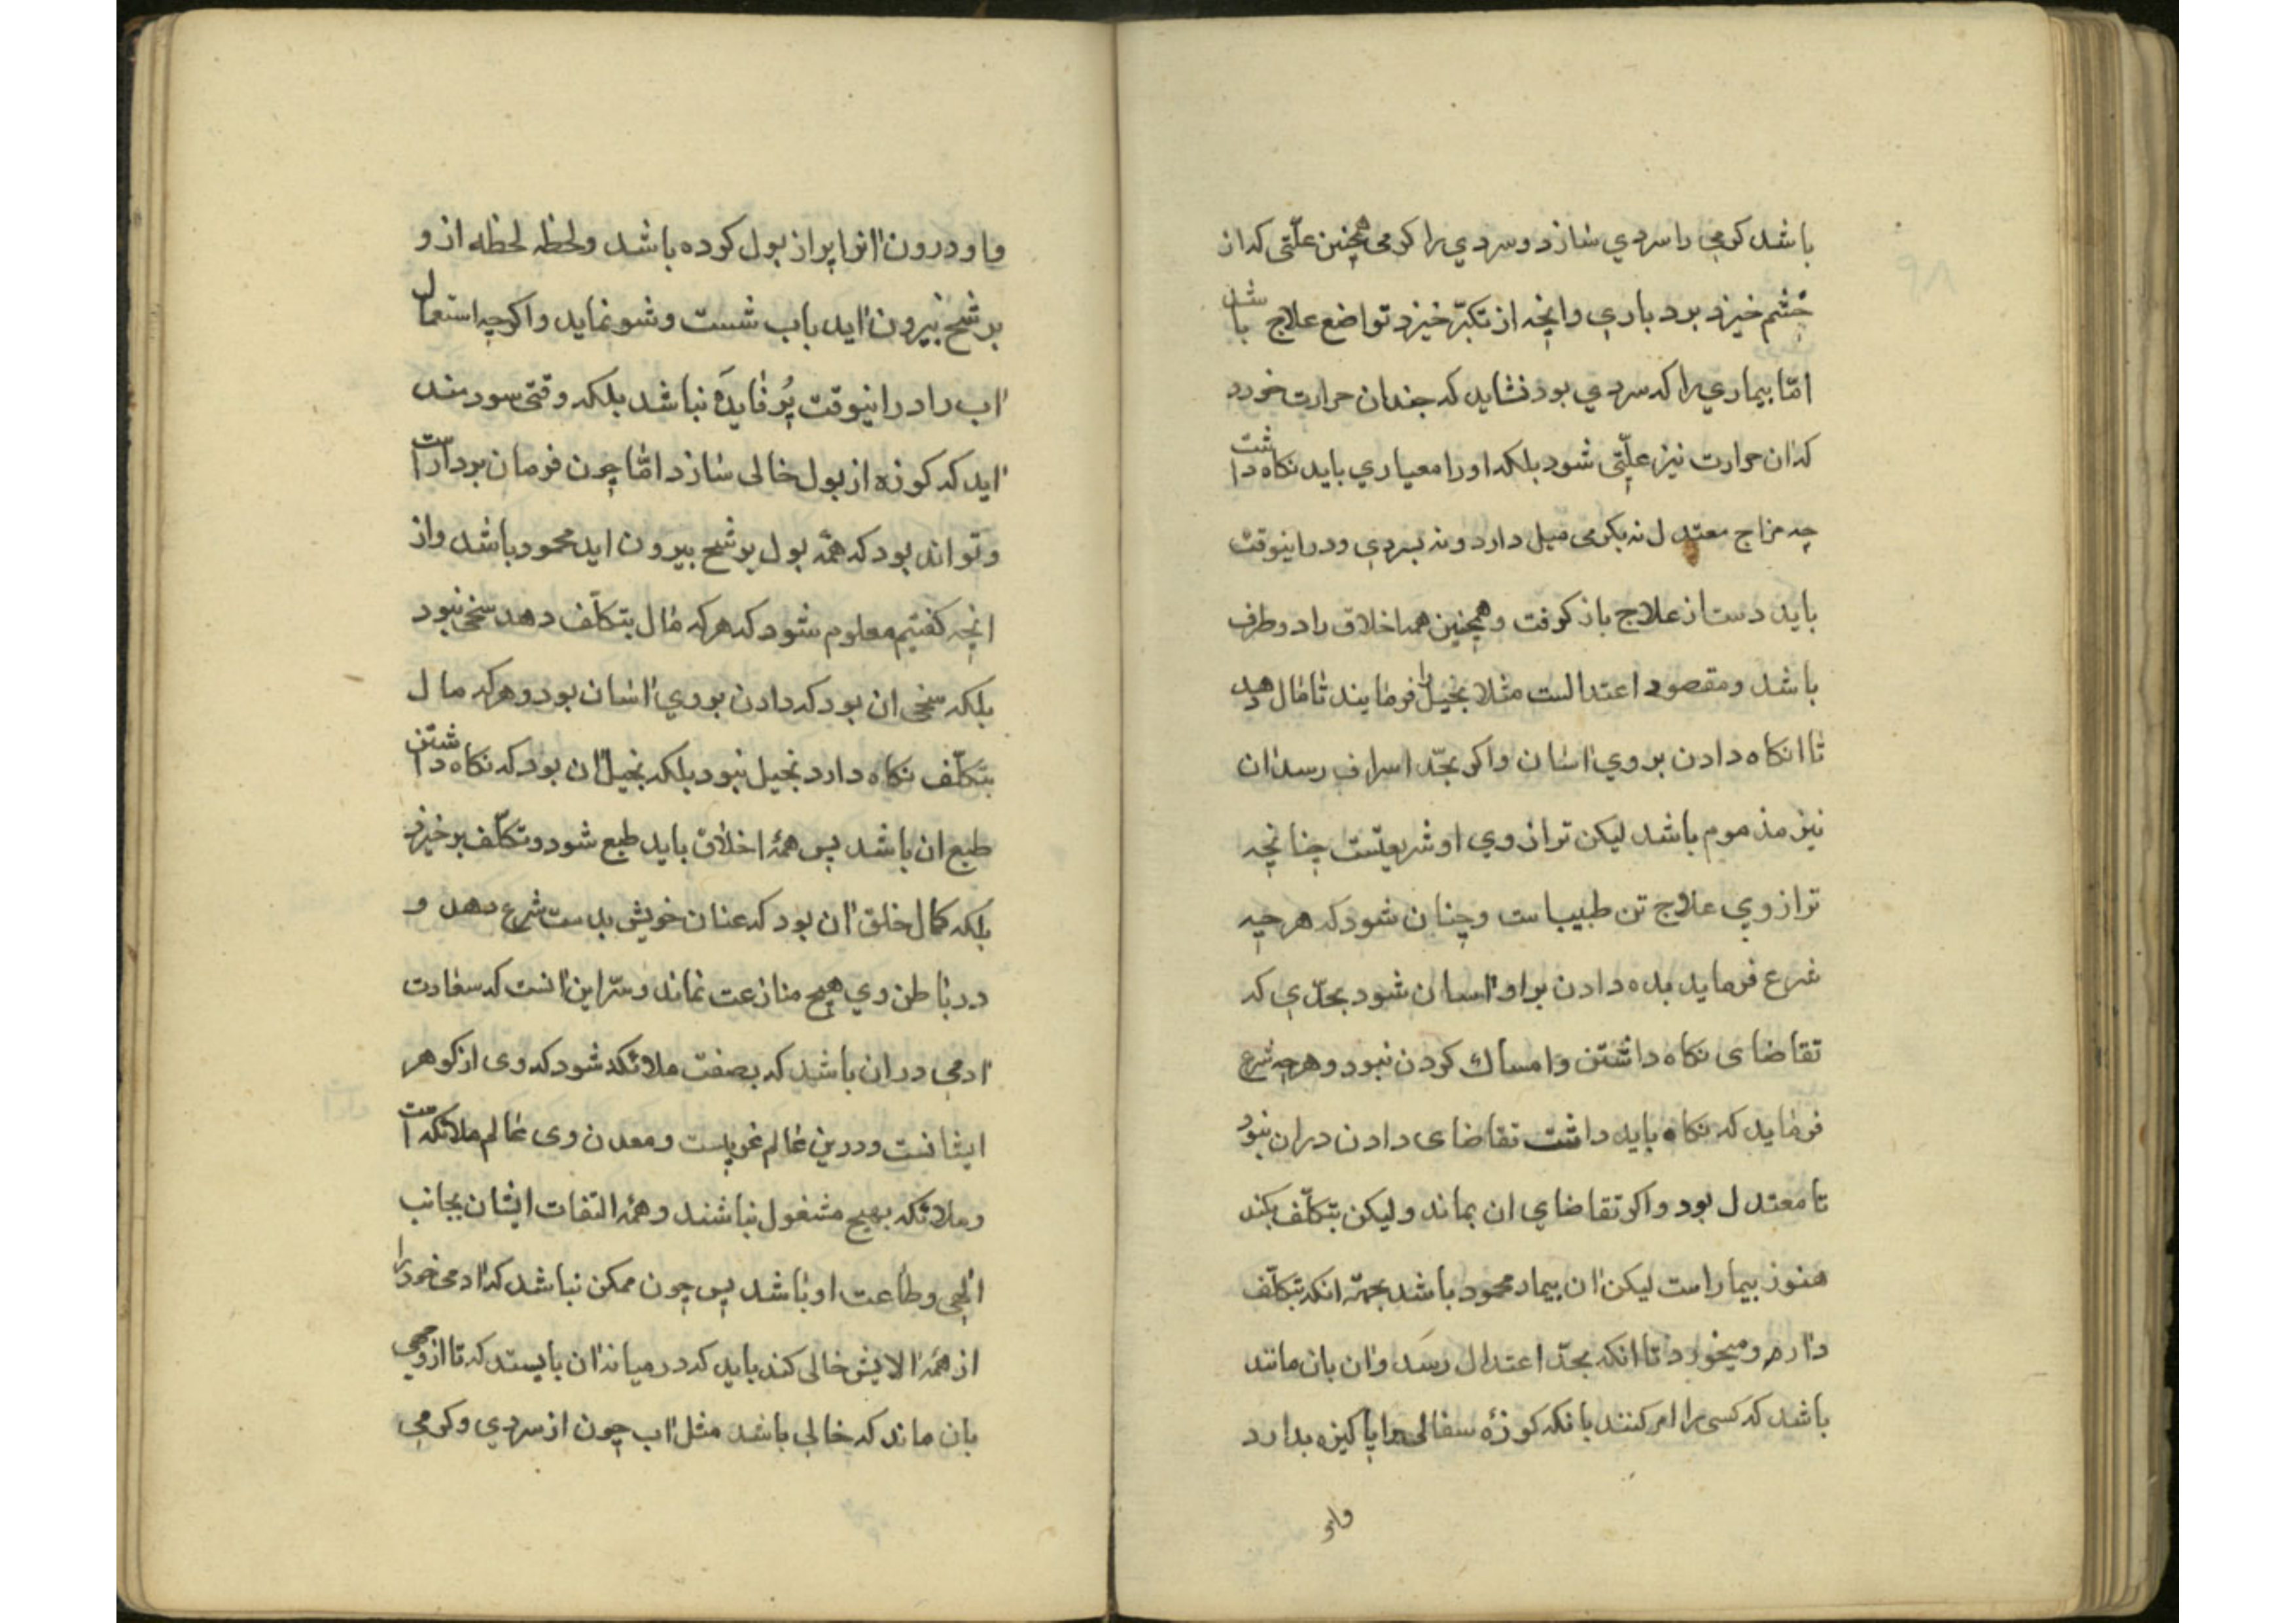 ۹۸
باشد کرمی را سردی سازد و سردی را کرمی همچنین علّتی که از
خشم خیزد بردباری وانچه از تکبّر خیزد تواضع علاج باشد
امّا بیماری را که سردی بود نشاید که چندان حرارت خورد
که ان حرارت نیز علّتی شود بلکه او را معیاری باید نکاه داشت
چه مزاج معتدل نه بکرمی میل دارد و نه بسردی و دراینوقت
باید دست از علاج باز کرفت و همچنین همه اخلاق را دو طرف
باشد و مقصود اعتدالست مثلا بخیل را فرمایند تا مال دهد
تا انکاه دادن بر وی اسان و اکر بحدّ اسراف رسد ان
نیز مذموم باشد لیکن ترازوی او شریعتست چنانچه
ترازوی علاج تن طبیب است و چنان شود که هر چه
شرع فرماید بده دادن بر او اسان شود بحدّی که
تقاضای نکاه داشتن و امساك کردن نبود و هرچه شرع
فرماید که نکاه باید داشت تقاضای دادن دران نبود
تا معتدل بود و اکر تقاضای ان بماند و لیکن بتکلّف بکند
هنوز بیمار است لیکن ان بیمار محمود باشد بجهة انکه بتکلّف
دارو میخورد تا انکه بحدّ اعتدال رسد و ان بان مانند
باشد که کسی را امر کنند بانکه کوزهٔ سفالی را پاکیزه بدارد
و او
و او درون انرا پر از بول کرده باشد و لحظه لحظه از و
برشح بیرون اید باب شست و شو نماید و اکرچه استعمال
اب را دراینوقت پُر فایدهٔ نباشد بلکه وقتی سودمند
اید که کوزه از بول خالی سازد امّا چون فرمان بردار است
و تواند بود که همه بول برشح بیرون اید محمود باشد و از
انچه کفتیم معلوم شود که هر که مال بتکلّف دهد سخی نبود
بلکه سخی ان بود که دادن بر وی اسان بود و هر که مال
بتکلّف نکاه دارد بخیل نبود بلکه بخیل ان بود که نکاه داشتن
طبع ان باشد پس همهٔ اخلاق باید طبع شود و تکلّف برخیزد
بلکه کمال خلق ان بود که عنان خویش بدست شرع دهد و
در باطن وی هیچ منازعت نماند و سرّ این انست که سعادت
ادمی دران باشد که بصفت ملائکه شود که وی از کوهر
ایشانست و درین عالم غریبست و معدن وی عالم ملائکه است
و ملائکه بهیچ مشغول نباشند و همه التفات ایشان بجانب
الهی و طاعت او باشد پس چون ممکن نباشد که ادمی خود را
از همه الایش خالی کند باید که در میانه ان بایستد که تا از وجهی
بان ماند که خالی باشد مثل اب چون از سردی و کرمی